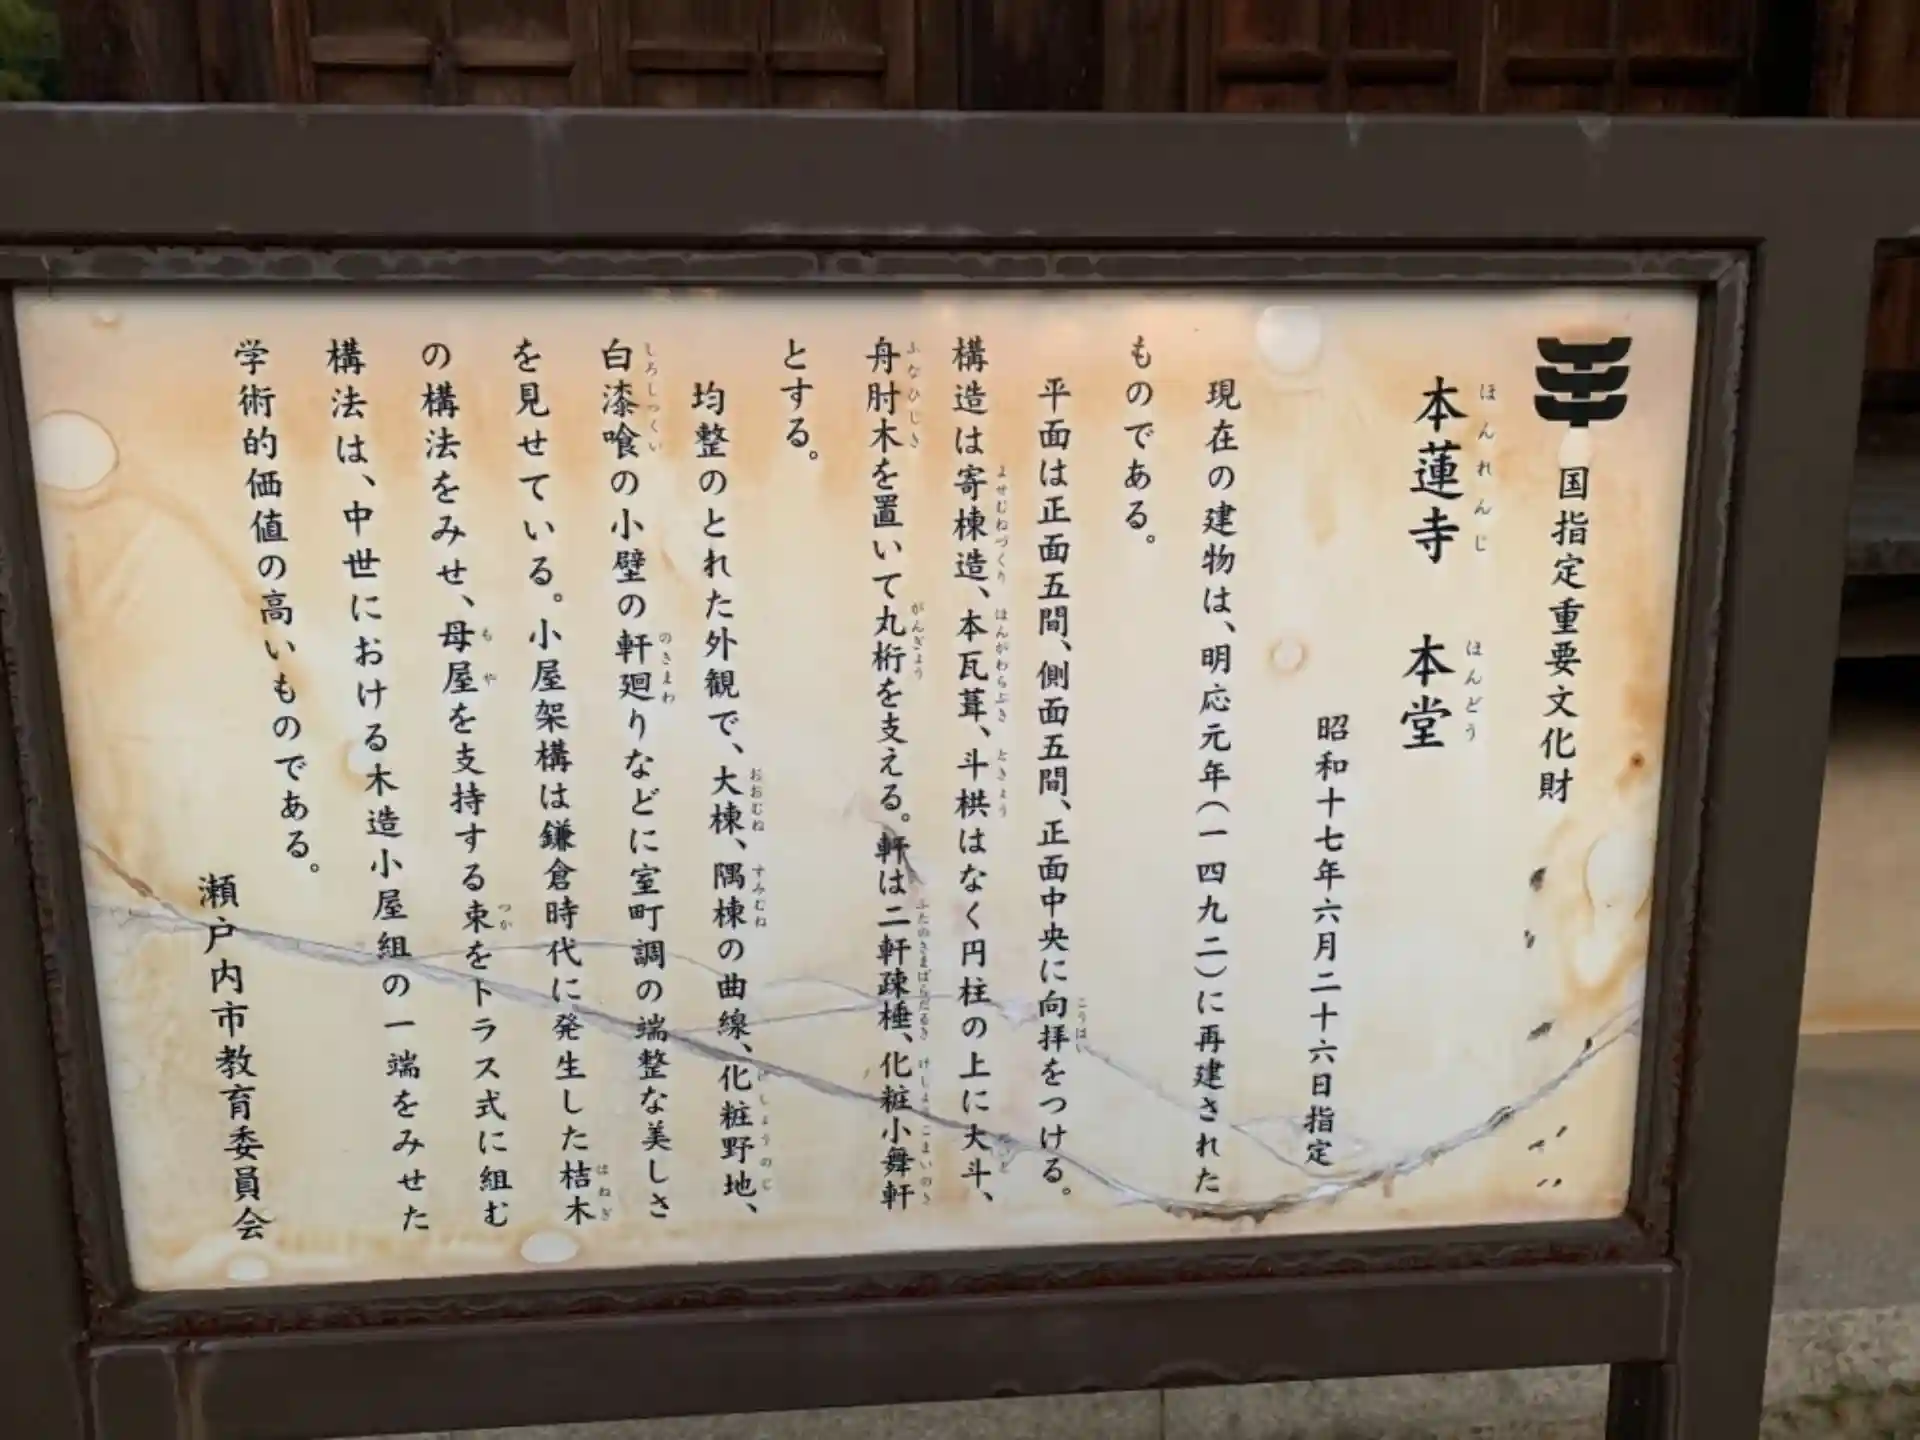 国指定重要文化財
本蓮寺 本堂
昭和十七年六月二十六日指定
現在の建物は、明応元年(一四九二)に再建された
ものである。
平面は正面五間、側面五間、正面中央に向拝をつける。
構造は寄棟造、本瓦葺、斗栱はなく円柱の上に大斗、
舟肘木を置いて丸桁を支える。軒は二軒疎棰、化粧小舞軒
とする。
均整のとれた外観で、大棟、隅棟の曲線、化粧野地、
白漆喰の小壁の軒廻りなどに室町調の端整な美しさ
を見せている。小屋架構は鎌倉時代に発生した桔木
の構法をみせ、母屋を支持する束をトラス式に組む
構法は、中世における木造小屋組の一端をみせた
学術的価値の高いものである。
瀬戸内市教育委員会